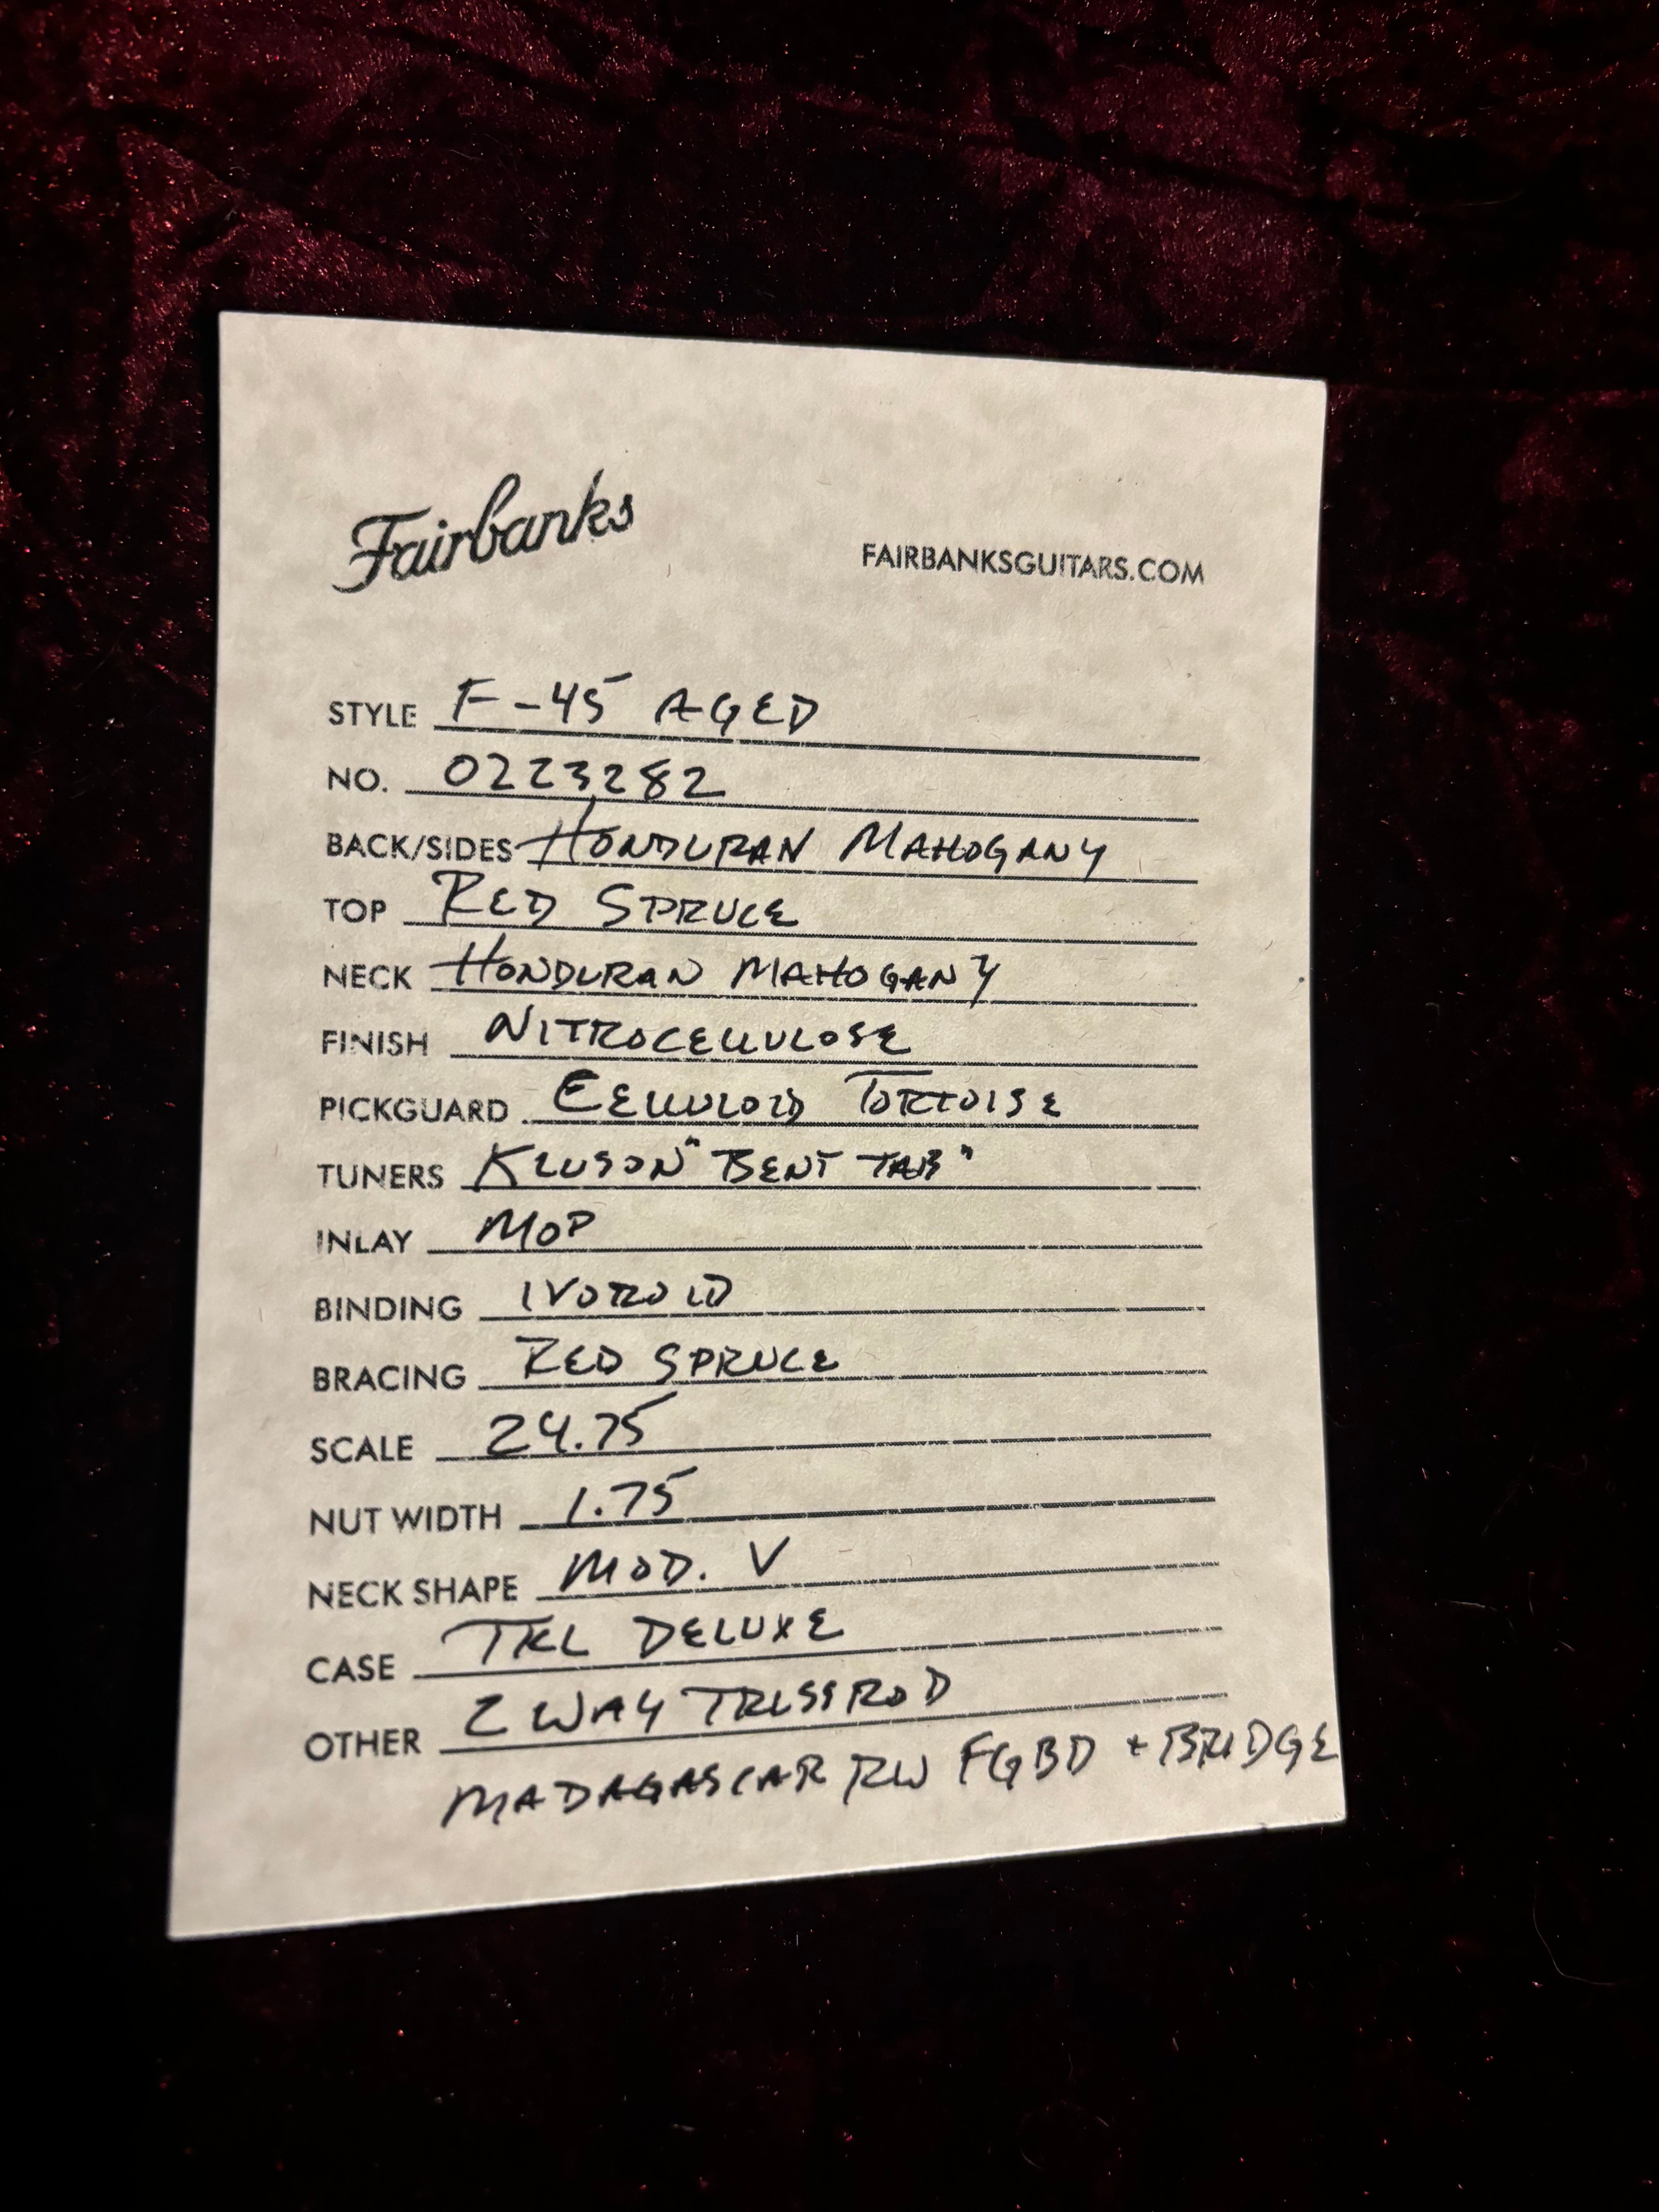 Fairbanks
FAIRBANKSGUITARS.COM
STYLE F-45 AGED
NO. 0223282
BACK/SIDES HONDURAN MAHOGANY
TOP RED SPRUCE
NECK HONDURAN MAHOGANY
FINISH NITROCELLULOSE
PICKGUARD CELLULOID TORTOISE
TUNERS KLUSON "BENT TAB"
INLAY MOP
BINDING IVOROID
BRACING RED SPRUCE
SCALE 24.75
NUT WIDTH 1.75
NECK SHAPE MOD. V
CASE TKL DELUXE
OTHER 2 WAY TRUSSROD
MADAGASCAR RW FGBD + BRIDGE